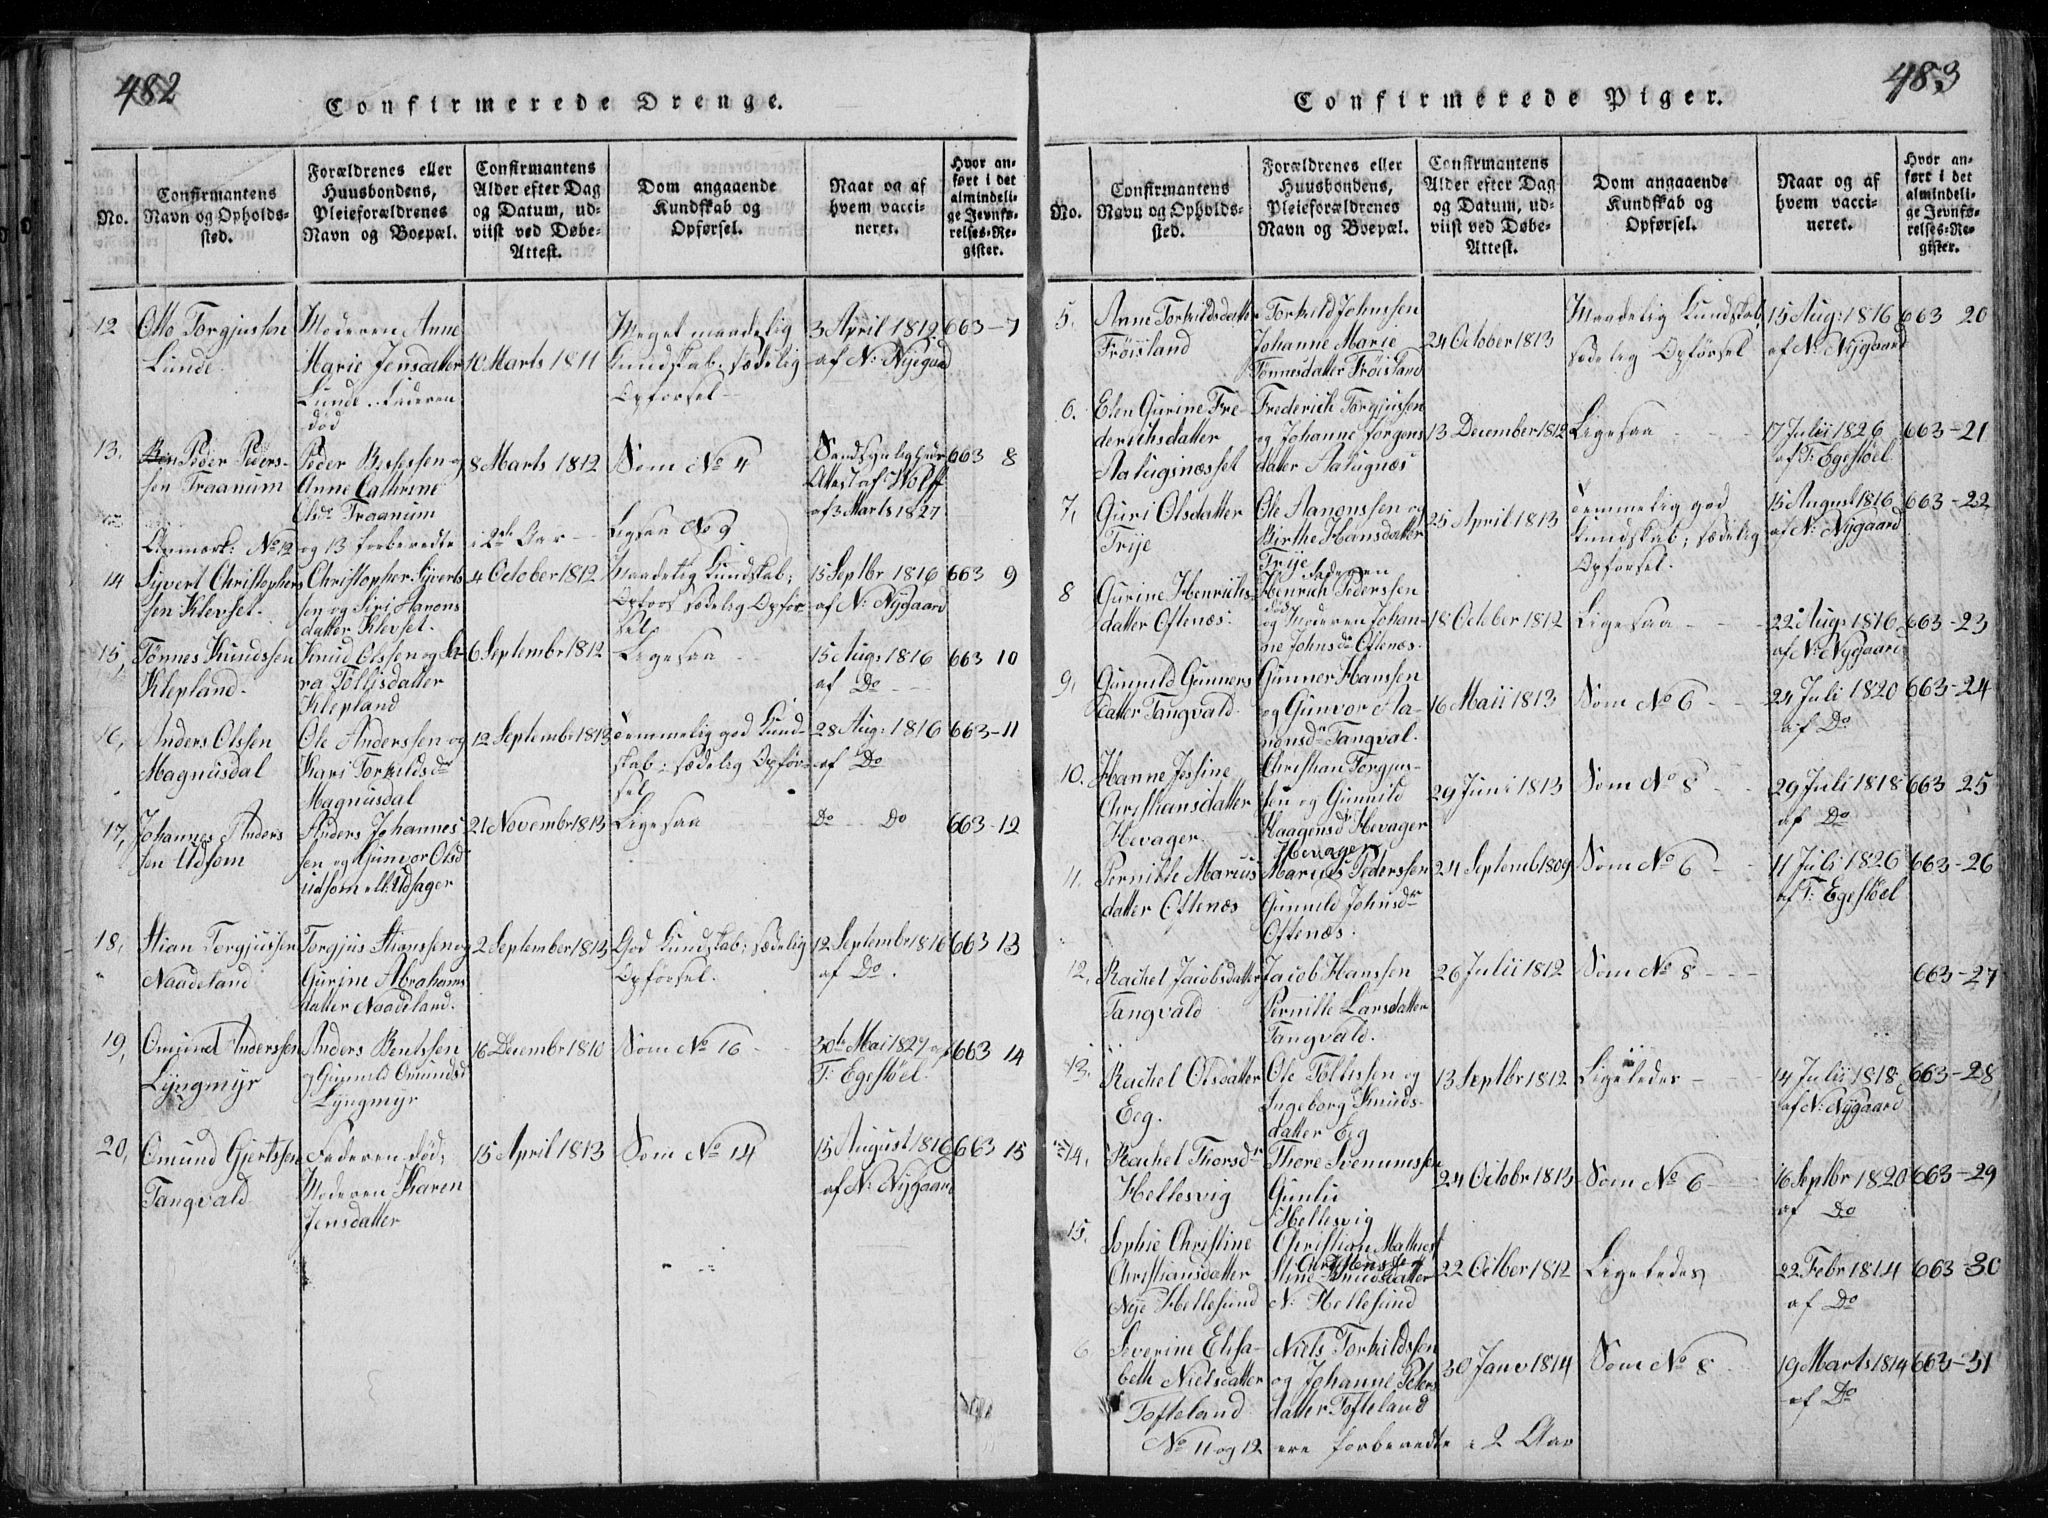 482
Confirmerede Drenge.
No.
Confirmantens
Navn og Opholds-
sted.
Forældrenes eller
Huusbondens,
Pleieforældrenes
Navn og Boepæl.
Confirmantens
Alder efter Dag
og Datum, ud-
viist ved Døbe-
Attest.
Dom angaaende
Kundskab og
Opførsel.
Naar og af
hvem vacci-
neret.
Hvor an-
ført i det
almindeli-
ge Jevnfø-
relses-Re-
gister.
12
Otto Torgjussen
Lunde.
Moderen Anne
Marie Jensdatter
Lunde. Faderen
død
10 Marts 1811
Meget maadelig
Kundskab; sædelig
Opførsel
3 April 1812
af N: Nygaard
663-7
13.
Peder Peders-
sen Traanum
Peder Berntsen og
Anne Cathrine
Traanum
8 Marts 1812
Som No 4
Attest af Wolff
af 3 Marts 1827
663 8
Anmærk: No 12
og 13 forberedte
i 2de Aar
Ligesaa No 9
14
Syvert Christophers
sen Klevset.
Christopher Syverts
sen og Siri Aanons
datter Klevset.
4 October 1812
Maadelig Kundskab;
sædelig Opfør-
sel
15 Septbr 1816
af N: Nygaard
663 9
15,
Tønnes Knudssen
Klepland.
Knud Olssen og Sa-
ra Tollisdatter
Klepland
6 Septembr 1812
Ligesaa
15 Aug: 1816
af Do
663 10
16,
Anders Olssen
Magnusdal
Ole Anderssen og
Kari Torkildsdr
Magnusdal
12 Septembr 1813
Temmelig god Kund-
skab; sædelig Opfør-
sel
28 Aug: 1816
af Do
663-11
17,
Johannes Anders
sen Udsom
Anders Johannes
sen og Gunvor Olsd
udsom ell: Udsager
21 Novembr 1813
Ligesaa
Do Do
663-12
18,
Stian Torgjussen
Naadeland
Torgjus Stianssen og
Gurine Abrahams
datter Naadeland.
2 September 1813
God Kundskab; sædelig
Opførsel.
12 Septembr 1816
af Do.
663 13
19,
Omund Anderssen
Lyngmyr
Anders Bentssen
og Gunnild Omundsd
Lyngmyr
16 Decembr 1810
Som No 16
30te Mai 1827 af
T: Egestøel.
663 14
20,
Omund Gjertssen
Tangvald
Faderen død;
Moderen Karen
Jensdatter
15 April 1813
Som No 14
15 August 1816
af N: Nygaard
663 15
483
Confirmerede Piger.
No.
Confirmantens
Navn og Opholds-
sted.
Forældrenes eller
Huusbondens,
Pleieforældrenes
Navn og Boepæl.
Confirmantens
Alder efter Dag
og Datum, ud-
viist ved Døbe-
Attest.
Dom angaaende
Kundskab og
Opførsel.
Naar og af
hvem vacci-
neret.
Hvor an-
ført i det
almindeli-
ge Jevnfø-
relses-Re-
gister.
5.
Anne Torkildsdatter
Frøisland
Torkild Johnssen
Johanne Marie
Tønnesdatter Frøisland
24 October 1813
Maadelig Kundskab,
sædelig Opførsel
15 Aug: 1816
af N: Nygaard
663 20
6.
Elen Gurine Fre-
derichsdatter
Aatugnæsset
Frederich Torgjussen
og Johanne Jørgens
datter Aatugnæs
13 December 1812
Ligesaa
17 Julii 1826
af T: Egestøel
663-21
7,
Guri Olsdatter
Trije
Ole Aanonssen og
Birthe Hansdatter
Trije
25 April 1813
Temmelig god
Kundskab; sædelig
Opførsel.
15 August 1816
af N: Nygaard
663-22
8
Gurine Henrichs-
datter Oftenæs.
Faderen
Henrich Pederssen
død
og Moderen Johan-
ne Johnsdr Oftenæs.
18 October 1812
Ligesaa
22 Aug: 1816
af N: Nygaard
663-23
9,
Gunnild Gunners
datter Tangvald.
Gunner Hanssen
og Gunvor Aa-
nonsdr Tangval.
16 Maii 1813
Som No 6
24 Juli 1820
af Do
663-24
10.
Hanne Jessine
Christiansdatter
Hevager
Christian Torgjus-
sen og Gunnild
Haagensdr Hevager
Hevager
29 Juni 1813
Som No 8
29 Juli 1818
af Do
663-25
11.
Pernille Marius
datter Oftenæs
Marius Pederssen
Gunnild Johnsdr
Oftenæs.
24 Septemb 1809
Som No 6
11 Juli 1826
af T: Egestøel
663-26
12,
Rachel Jacobsdatter
Tangvald
Jacob Hanssen
Pernille Larsdatter
Tangvald.
26 Julii 1812
Som No 8
663-27
13.
Rachel Olsdatter
Eeg.
Ole Tollissen og
Ingeborg Knuds-
datter Eeg
13 Septbr 1812
Ligeledes
14 Julii 1818
af N: Nygaard
663-28
14.
Rachel Thorsdr
Hellesvig
Thore Svenumssen
Gunli
Hellesvig
24 Octobr 1813
Som No 6
16 Septbr 1820
af Do
663-29
15.
Sophie Christine
Christiansdatter
Nye Hellesund
Christian Mathias
Christenssen
Stine Knudsdatter
N: Hellesund
22 October 1812
Ligeledes
22 Febr 1814
af Do
663-30
6.
Severine Elisa-
beth Nielsdatter
Tofteland
Niels Torkildssen
og Johanne Peters
datter Tofteland
30 Janv 1814
Som No 8
19 Marts 1814
af Do
663-31
No 11 og 12 ere forberedte i 2 Aar